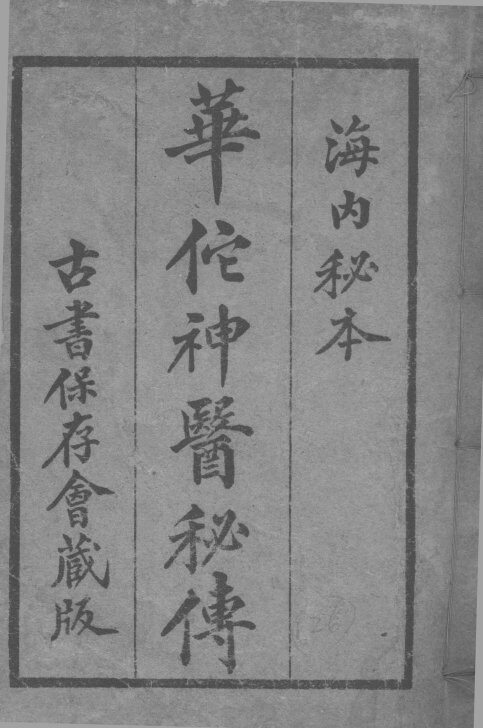 海内秘本
華佗神醫秘傳
古書保存會藏版
(26)